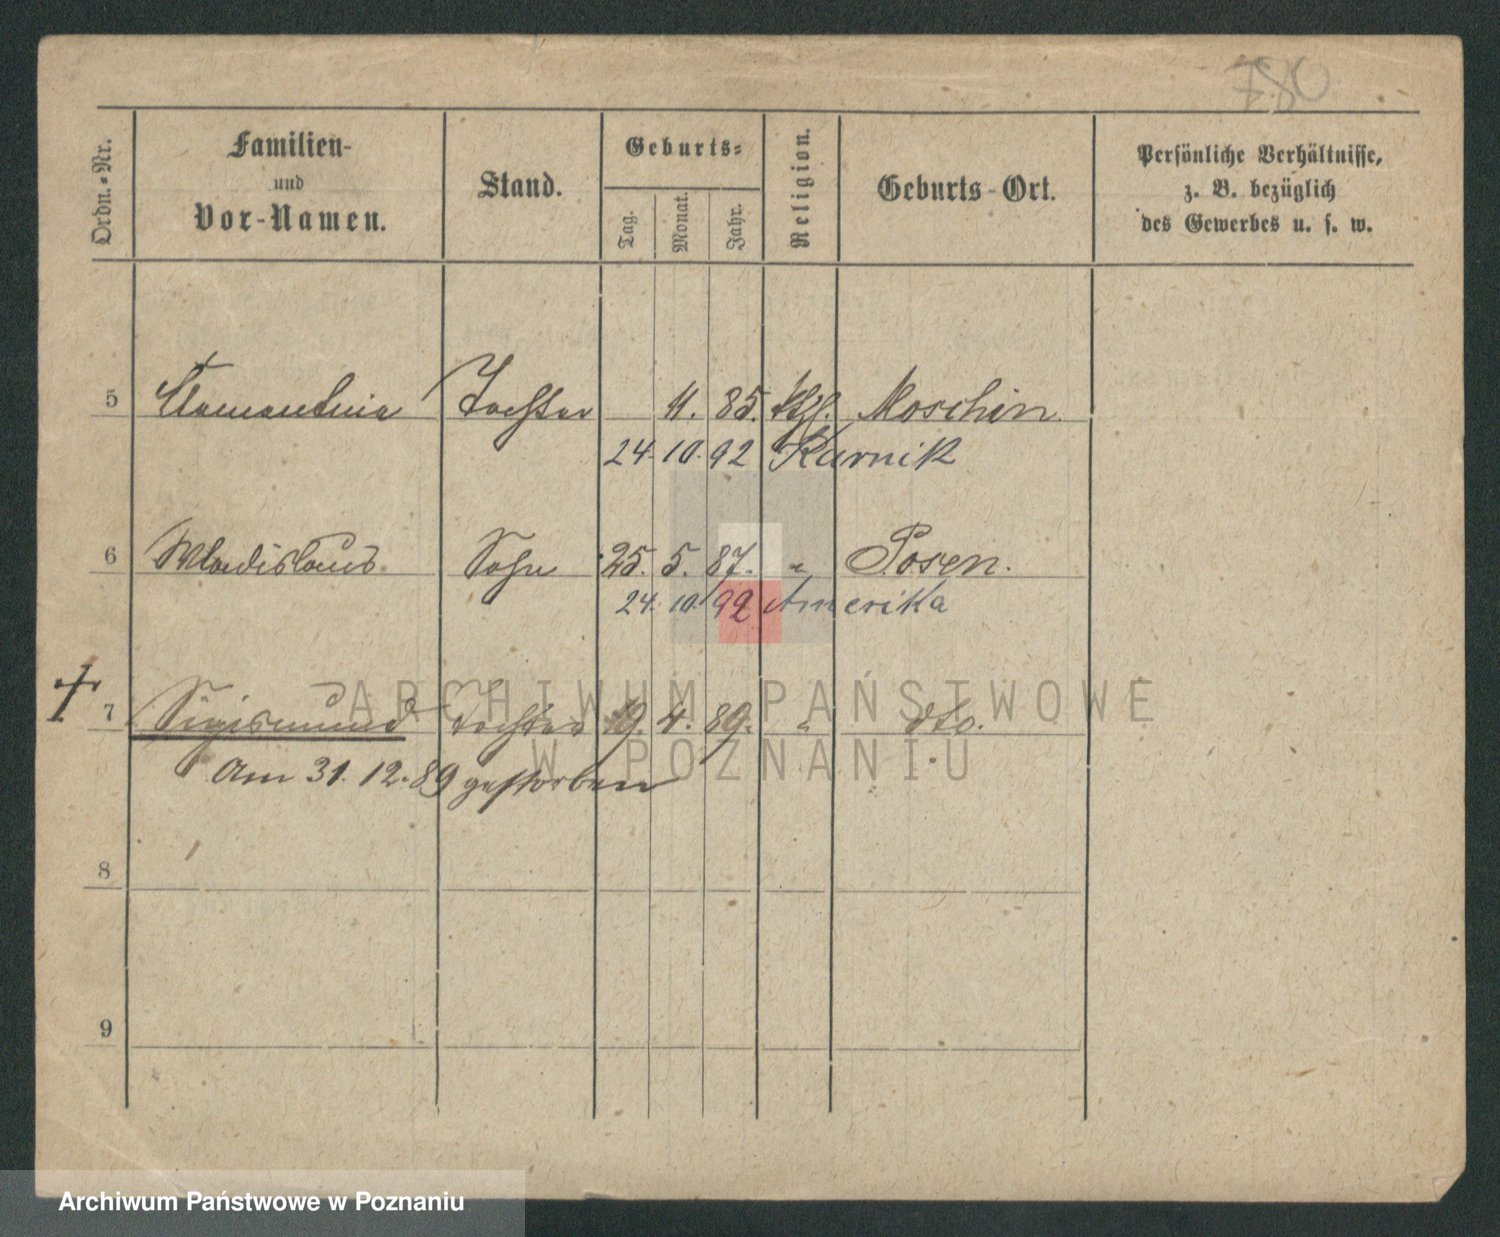 780
Ordn.-Nr.
Familien-
und
Vor-Namen.
Stand.
Geburts-
Tag.
Monat.
Jahr.
Religion.
Geburts-Ort.
Persönliche Verhältnisse,
z. B. bezüglich
des Gewerbes u. s. w.
5 Tochter 11. 85. ktl. Moschin
24. 10. 92 Kurnik
6 Wladislaus Sohn 25. 5. 87. " Posen.
24. 10. 92 Amerika
7 Sigismund Tochter 19. 4. 89. " dto.
Am 31. 12. 89 gestorben
8
9
ARCHIWUM PAŃSTWOWE
W POZNANIU
Archiwum Państwowe w Poznaniu